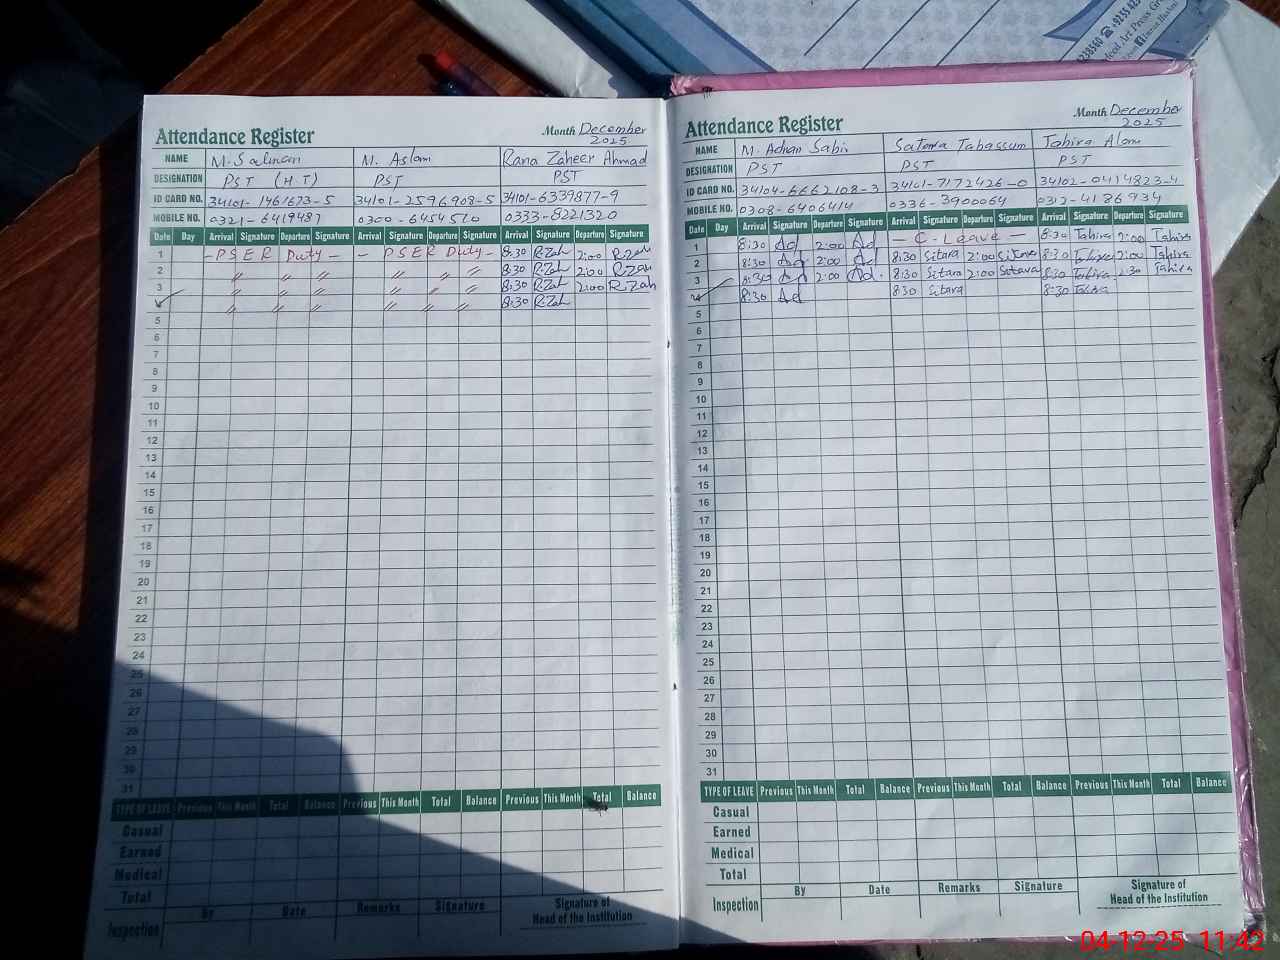 238560 ☎ +9255 425
deol Art Press Gr
Attendance Register Month December 2025
NAME M. Salman M. Aslam Rana Zaheer Ahmad
DESIGNATION PST (H.T) PST PST
ID CARD NO. 34101-1461673-5 34101-2596908-5 34101-6339877-9
MOBILE NO. 0321-6419487 0300-6454510 0333-8221320
Date Day Arrival Signature Departure Signature Arrival Signature Departure Signature Arrival Signature Departure Signature
1 - PSER Duty - - PSER Duty - 8:30 R.Zah 2:00 R.Zah
2 〃 〃 〃 〃 〃 〃 〃 8:30 R.Zah 2:00 R.Zah
3 〃 〃 〃 〃 〃 〃 〃 8:30 R.Zah 2:00 R.Zah
4 〃 〃 〃 〃 〃 〃 〃 8:30 R.Zah
5
6
7
8
9
10
11
12
13
14
15
16
17
18
19
20
21
22
23
24
25
26
27
28
29
30
31
TYPE OF LEAVE Previous This Month Total Balance Previous This Month Total Balance Previous This Month Total Balance
Casual
Earned
Medical
Total
Inspection By Date Remarks Signature Signature of Head of the Institution
Attendance Register Month December 2025
NAME M. Adnan Sabir Satara Tabassum Tahira Alam
DESIGNATION PST PST PST
ID CARD NO. 34104-6662108-3 34101-7172426-0 34102-0414823-4
MOBILE NO. 0308-6406414 0336-3900064 0312-4186934
Date Day Arrival Signature Departure Signature Arrival Signature Departure Signature Arrival Signature Departure Signature
1 8:30 Ad 2:00 Ad - C-Leave - 8:30 Tahira 2:00 Tahira
2 8:30 Ad 2:00 Ad 8:30 Sitara 2:00 Sitara 8:30 Tahira 2:00 Tahira
3 8:30 Ad 2:00 Ad. 8:30 Sitara 2:00 Satara 8:30 Tahira 1:30 Tahira
4 8:30 Ad 8:30 Sitara 8:30 Tahira
5
6
7
8
9
10
11
12
13
14
15
16
17
18
19
20
21
22
23
24
25
26
27
28
29
30
31
TYPE OF LEAVE Previous This Month Total Balance Previous This Month Total Balance Previous This Month Total Balance
Casual
Earned
Medical
Total
Inspection By Date Remarks Signature Signature of Head of the Institution
04-12-25 11:42